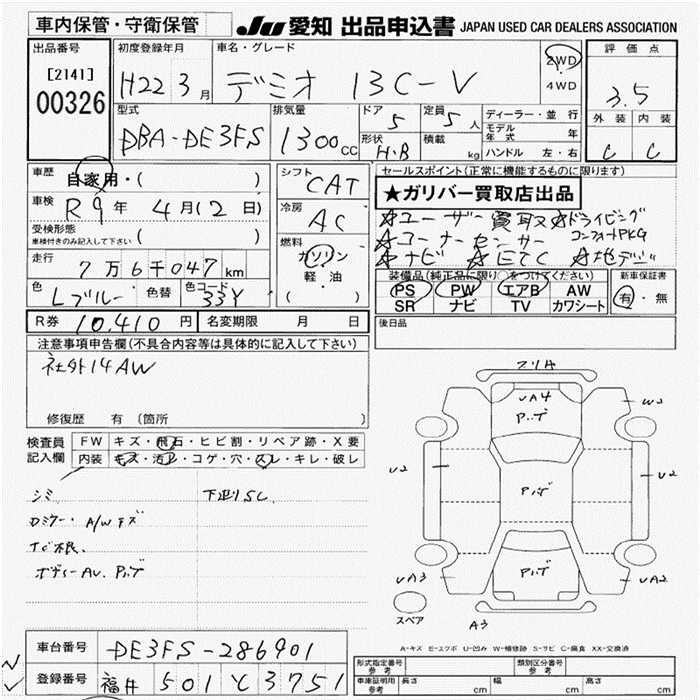 車内保管・守衛保管
JU 愛知 出品申込書 JAPAN USED CAR DEALERS ASSOCIATION
出品番号
[2141]
00326
初度登録年月
H22 3月
車名・グレード
デミオ 13C-V
2WD
4WD
評価点
3.5
外装 内装
C C
型式
DBA-DE3FS
排気量
1300cc
ドア
5
形状
H・B
定員
5人
積載
kg
ディーラー・並行
モデル年式 年
ハンドル 左・右
車歴
自家用・( )
車検
R9年 4月(2日)
受検形態
車検付きのみ記入して下さい ( )
走行
7万6千047km
色
Lブルー
色替
色コード
33Y
シフト
CAT
冷房
AC
燃料
ガソリン
軽・油
( )
セールスポイント(正常に機能するものに限ります)
★ガリバー買取店出品
☆ユーザー買取☆ドライビング
☆コーナーセンサー コンフォートPKG
☆ナビ ☆ETC ☆地デジ
装備品(純正品に限り○をつけてください)
PS PW エアB AW
SR ナビ TV カワシート
新車保証書
有・無
R券 10,410円 名変期限 月 日
後日品
注意事項申告欄(不具合内容等は具体的に記入して下さい)
社外14AW
修復歴 有 (箇所 )
検査員記入欄
FW キズ・飛石・ヒビ割・リペア跡・X要
内装 キズ・汚レ・コゲ・穴・スレ・キレ・破レ
シミ 下廻りSC
Dミラー・A/Wキズ
ボディーAU. Pップ
フリハ
UA4
Pップ
W2
U2
Pップ
U2
Pップ
UA3
UA2
スペア
A3
A-キズ E-エクボ U-凹み W-補修跡 S-サビ C-腐食 XX-交換済
車台番号
DE3FS-286901
登録番号
福井 501 ひ3751
形式指定番号 参考
類別区分番号 参考
車庫証明用 参考
長さ cm 幅 cm 高さ cm